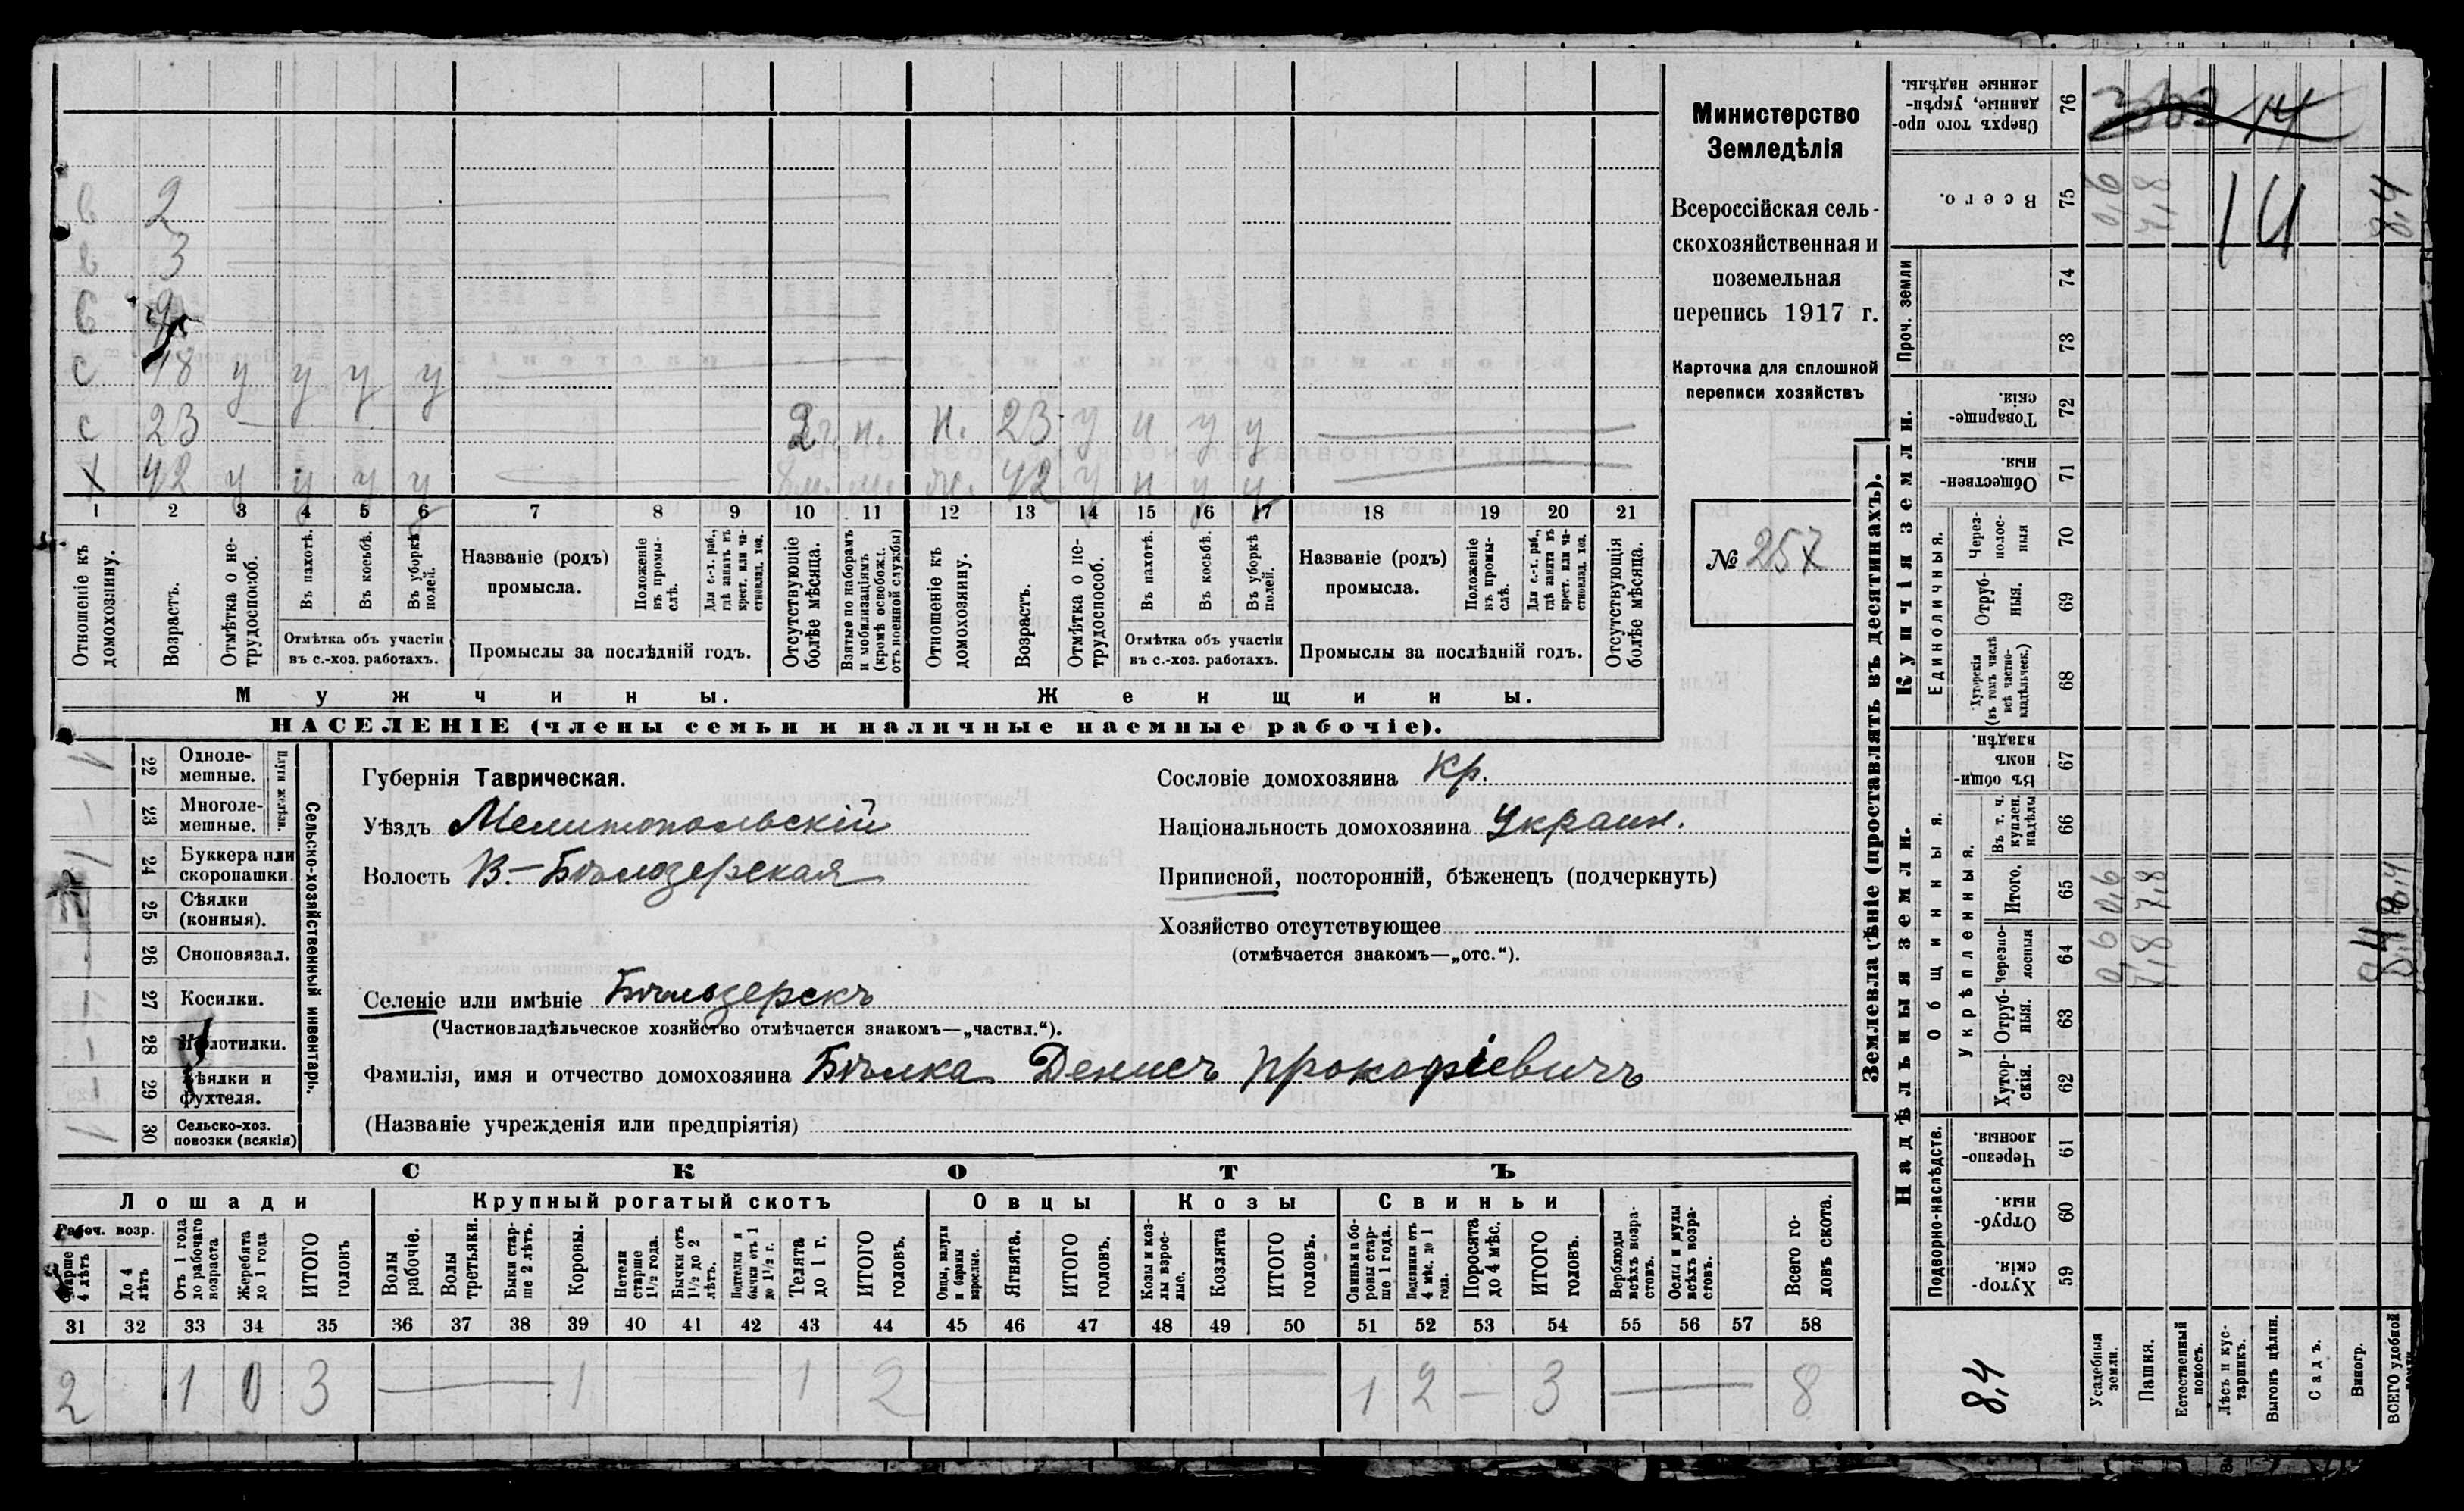 Министерство
Земледѣлія
Всероссійская сель-
скохозяйственная и
поземельная
перепись 1917 г.
Карточка для сплошной
переписи хозяйствъ
№ 257
в 2
в 3
с 18 у у у у
с 23 2 г. н. н. 23 у н у у
х 42 у у у у 42 у н у у
1 2 3 4 5 6 7 8 9 10 11 12 13 14 15 16 17 18 19 20 21
Отношеніе къ домохозяину.
Возрастъ.
Отмѣтка о не-трудоспособ.
Въ пахотѣ.
Въ косьбѣ.
Въ уборкѣ полей.
Отмѣтка объ участіи
въ с.-хоз. работахъ.
Названіе (родъ)
промысла.
Положеніе въ промы-слѣ.
Для с.-х. раб., гдѣ занятъ въ крест. или ча-стновлад. хоз.
Промыслы за послѣдній годъ.
Отсутствующіе болѣе мѣсяца.
Взятые по наборамъ и мобилизаціямъ (кромѣ освобожд. отъ военной службы)
Отношеніе къ домохозяину.
Возрастъ.
Отмѣтка о не-трудоспособ.
Въ пахотѣ.
Въ косьбѣ.
Въ уборкѣ полей.
Отмѣтка объ участіи
въ с.-хоз. работахъ.
Названіе (родъ)
промысла.
Положеніе въ промы-слѣ.
Для с.-х. раб., гдѣ занята въ крест. или ча-стновлад. хоз.
Промыслы за послѣдній годъ.
Отсутствующія болѣе мѣсяца.
Мужчины.
Женщины.
НАСЕЛЕНІЕ (члены семьи и наличные наемные рабочіе).
Сельско-хозяйственный инвентарь.
Плуги желѣзн.
22 Одноле-мешные.
23 Многоле-мешные.
24 Буккера или скоропашки
25 Сѣялки (конныя).
26 Сноповязал.
27 Косилки.
28 Молотилки.
29 Вѣялки и фухтеля.
30 Сельско-хоз. повозки (всякія)
Губернія Таврическая.
Уѣздъ Мелитопольскій
Волость В.-Бѣлозерская
Селеніе или имѣніе Бѣлозерскъ
(Частновладѣльческое хозяйство отмѣчается знакомъ—„частвл.“).
Фамилія, имя и отчество домохозяина Бѣлка Денисъ Прокофіевичъ
(Названіе учрежденія или предпріятія)
Сословіе домохозяина Кр.
Національность домохозяина Украин.
Приписной, посторонній, бѣженецъ (подчеркнуть)
Хозяйство отсутствующее
(отмѣчается знакомъ—„отс.“).
СКОТЪ
Лошади Крупный рогатый скотъ Овцы Козы Свиньи
Рабоч. возр.
Старше 4 лѣтъ
До 4 лѣтъ
Отъ 1 года до рабочаго возраста
Жеребята до 1 года
ИТОГО головъ
Волы рабочіе.
Волы третьяки.
Быки стар-ше 2 лѣтъ.
Коровы.
Нетели старше 1½ года.
Бычки отъ 1½ до 2 лѣтъ.
Подтелки и бычки отъ 1 до 1½ г.
Телята до 1 г.
ИТОГО головъ.
Овцы, валухи и бараны взрослые.
Ягнята.
ИТОГО головъ.
Козы и коз-лы взрос-лые.
Козлята
ИТОГО головъ.
Свиньи и бо-ровы стар-ше 1 года.
Подсвинки отъ 4 мѣс. до 1 года.
Поросята до 4 мѣс.
ИТОГО головъ.
Верблюды всѣхъ возра-стовъ.
Ослы и мулы всѣхъ возра-стовъ.
Всего го-ловъ скота.
31 32 33 34 35 36 37 38 39 40 41 42 43 44 45 46 47 48 49 50 51 52 53 54 55 56 57 58
2 1 0 3 — 1 1 2 1 2 — 3 — 8
Землевладѣніе (проставлять въ десятинахъ).
Сверхъ того про-данные, укрѣп-ленные надѣлы. 76
Всего. 75 0,6 7,8 14 8,4
Проч. земли 74 73
Купчія земли.
Товарище-скія. 72
Обществен-ныя. 71
Единоличныя.
Через-полос-ныя 70
Отруб-ныя. 69
Хуторскія (въ томъ числѣ всѣ частно-владѣльческ.) 68
Надѣльныя земли.
Общинныя.
Въ общи-номъ владѣн. 67
Укрѣпленныя.
Въ т. ч. куплен. надѣлы 66
Итого. 65 0,6 7,8 8,4
Черезпо-лосныя 64 0,6 7,8 8,4
Отруб-ныя. 63
Хутор-скія. 62
Подворно-наслѣдств.
Черезпо-лосныя. 61
Отруб-ныя. 60
Хутор-скія. 59
8,4
Усадебныя земли.
Пашня.
Естественный покосъ.
Лѣсъ и кус-тарникъ.
Выгонъ цѣлин.
Садъ.
Виногр.
ВСЕГО удобной